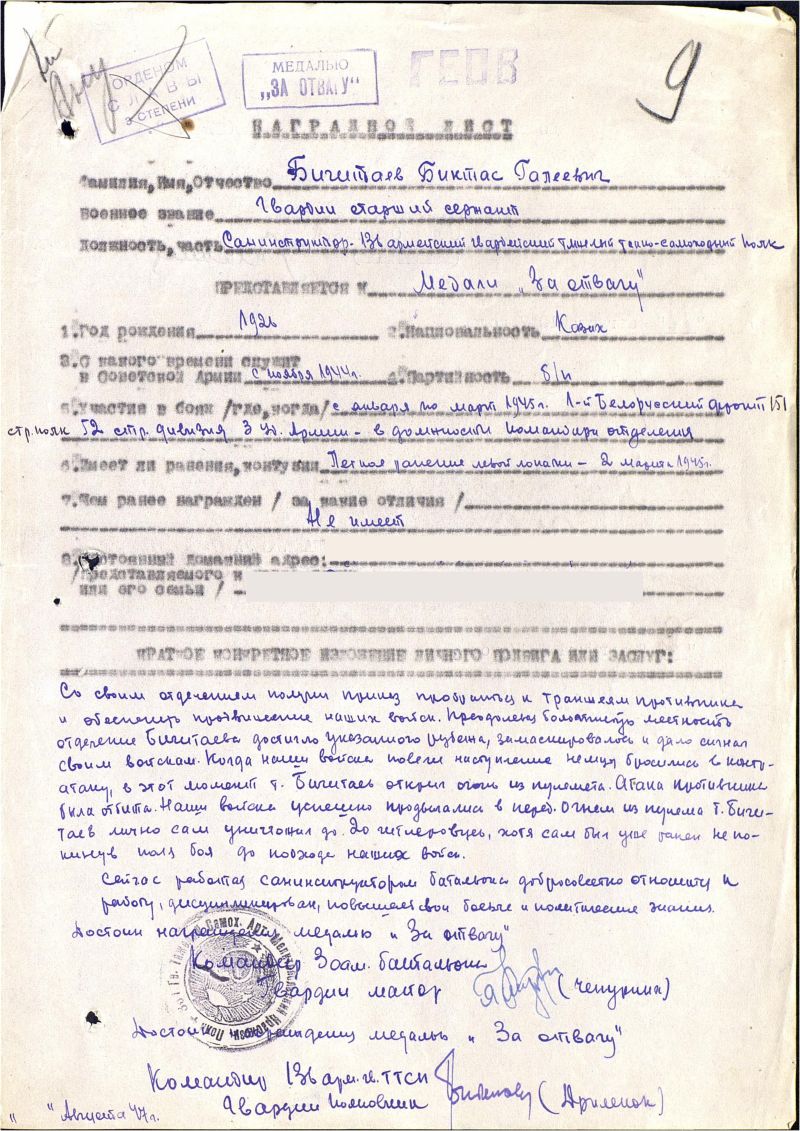 ОРДЕНОМ
СЛАВЫ
3 СТЕПЕНИ
МЕДАЛЬЮ
„ЗА ОТВАГУ“
9
НАГРАДНОЙ ЛИСТ
Фамилия, Имя, Отчество Бигитаев Биктас Галеевич
Военное звание Гвардии старший сержант
Должность, часть Санинструктор- 138 армейский гвардейский тяжелый танко-самоходный полк
ПРЕДСТАВЛЯЕТСЯ К Медали „За отвагу"
1. Год рождения 1926 2. Национальность Казах
3. С какого времени служит
в Советской Армии с ноября 1944г. 4. Партийность б/п
5. Участие в боях /где, когда/ с января по март 1945г. 1-й Белорусский фронт 151
стр. полк 52 стр. дивизия 3 уд. Армии - в должности командира отделения
6. Имеет ли ранения, контузии Легкое ранение левой лопатки - 2 марта 1945г.
7. Чем ранее награжден / за какие отличия /
Не имеет
8. Постоянный домашний адрес:
/представляемого к
или его семьи /
КРАТКОЕ КОНКРЕТНОЕ ИЗЛОЖЕНИЕ ЛИЧНОГО ПОДВИГА ИЛИ ЗАСЛУГ:
Со своим отделением получил приказ пробраться к траншеям противника
и обеспечить продвижение наших войск. Преодолевая болотистую местность
отделение Бигитаева достигло указанного рубежа, замаскировалось и дало сигнал
своим войскам. Когда наши войска повели наступление немцы бросились в контр-
атаку, в этот момент т. Бигитаев открыл огонь из пулемета. Атака противника
была отбита. Наши войска успешно продвигались в перед. Огнем из пулемета т. Биги-
таев лично сам уничтожил до 20 гитлеровцев, хотя сам был уже ранен не по-
кинув поля боя до подхода наших войск.
Сейчас работая санинструктором батальона добросовестно относится к
работу, дисциплинирован, повышает свои боевые и политические знания.
Достоин награждения медалью „За отвагу"
Командир батальона
Гвардии майор (Чепурнин)
Достоин награждения медалью „За отвагу"
Командир 138 арм. гв. ТТСП
Гвардии полковник (Дриленок)
„ " Августа 47г.